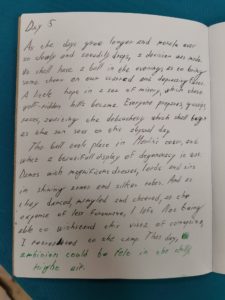 Day 5
As the days grow longer and morale ever
so steady and steadily drops, a decision was made.
We shall have a ball in the evenings, as to bring
some cheer on our and depressing faces.
A little hope in a sea of misery, which these
wolf-ridden hills became. Everyone prepares,
the debauchery which shall begin
as the sun sets on this day.
The ball took place in
what a beautiful display of degeneracy it was.
Dames with magnificent dresses, lords and sirs
in shining armor and silken robes. And as
they danced, mingled and cheered, at the
expense of less fortunate, I left. Not being
able to withstand this of corruption,
I returned to the camp. This day,
ambition could be felt in the chilly
night air.